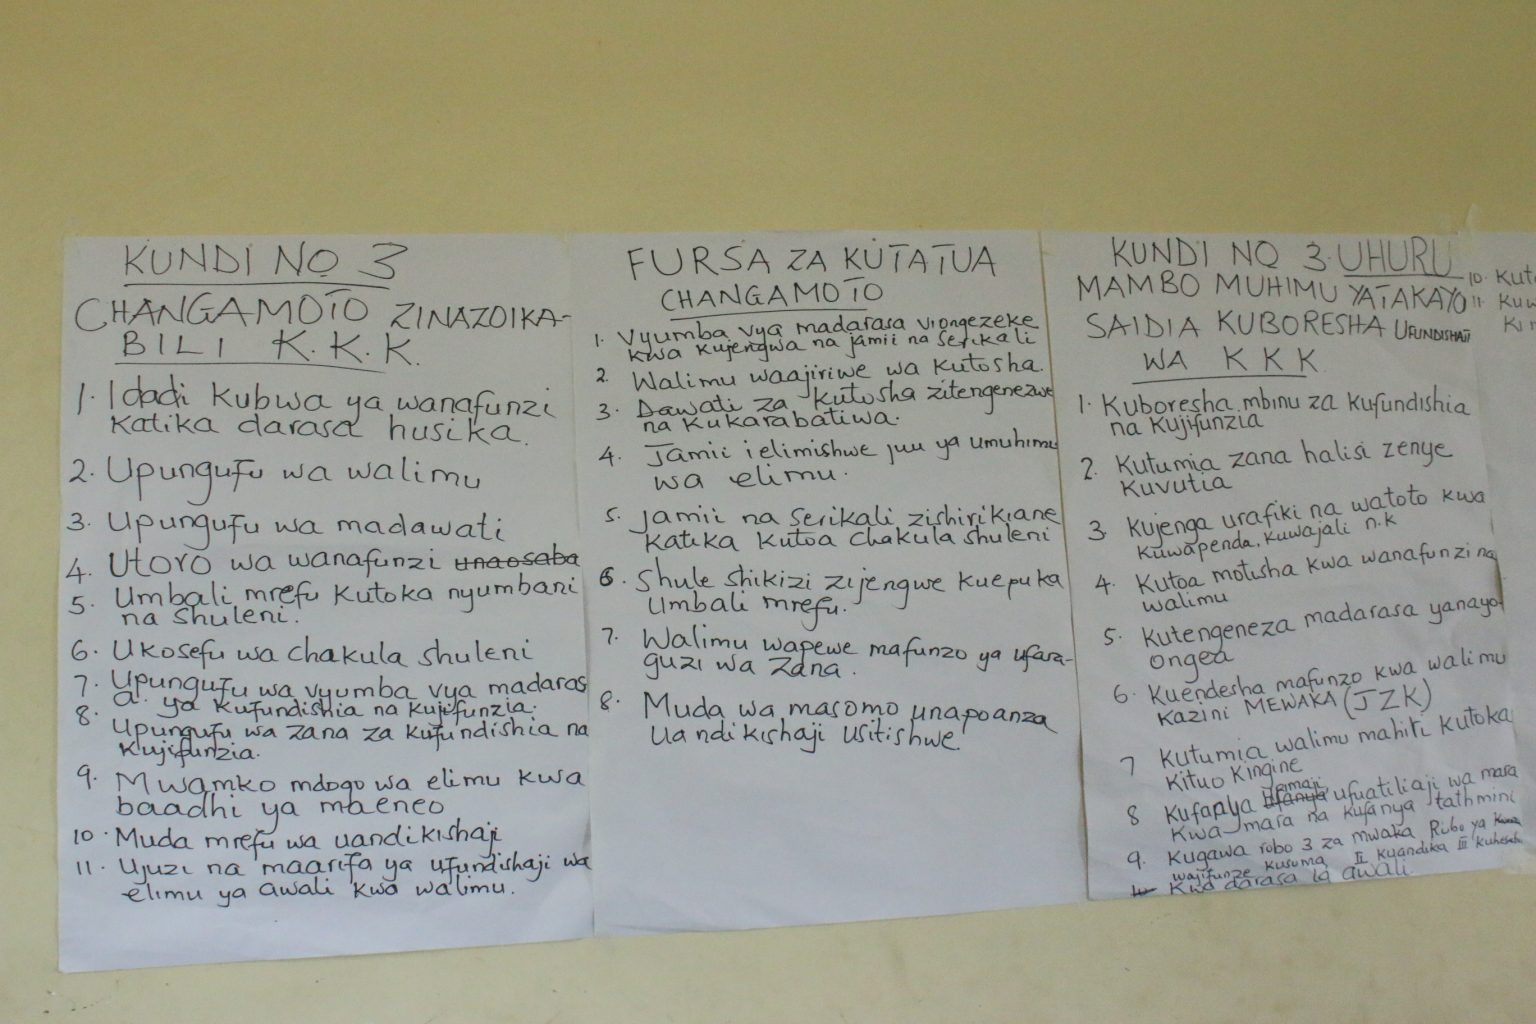 KUNDI NO 3
CHANGAMOTO ZINAZOIKA-
BILI K.K.K.
1. Idadi kubwa ya wanafunzi
katika darasa husika.
2. Upungufu wa walimu
3. Upungufu wa madawati
4. Utoro wa wanafunzi unaosaba
5. Umbali mrefu kutoka nyumbani
na shuleni.
6. Ukosefu wa chakula shuleni
7. Upungufu wa vyumba vya madaras
a ya kufundishia na kujifunzia.
8. Upungufu wa zana za kufundishia na
kujifunzia.
9. Mwamko mdogo wa elimu kwa
baadhi ya maeneo
10. Muda mrefu wa uandikishaji
11. Ujuzi na maarifa ya ufundishaji wa
elimu ya awali kwa walimu.
FURSA ZA KUTATUA
CHANGAMOTO
1. Vyumba vya madarasa viongezeke
kwa kujengwa na jamii na serikali
2. Walimu waajiriwe wa kutosha.
3. Dawati za kutosha zitengenezwe
na kukarabatiwa.
4. Jamii ielimishwe juu ya umuhimu
wa elimu.
5. Jamii na serikali zishirikiane
katika kutoa chakula shuleni
6. Shule shikizi zijengwe kuepuka
umbali mrefu.
7. Walimu wapewe mafunzo ya ufara-
guzi wa zana.
8. Muda wa masomo unapoanza
uandikishaji usitishwe
KUNDI NO 3 UHURU
MAMBO MUHIMU YATAKAYO
SAIDIA KUBORESHA UFUNDISHAJI
WA K K K
1. Kuboresha mbinu za kufundishia
na kujifunzia
2. Kutumia zana halisi zenye
kuvutia
3. Kujenga urafiki na watoto kwa
kuwapenda, kuwajali n.k
4. Kutoa motisha kwa wanafunzi na
walimu
5. Kutengeneza madarasa yanayo
ongea
6. Kuendesha mafunzo kwa walimu
kazini MEWAKA (JZK)
7 Kutumia walimu mahiri kutoka
kituo kingine
8 Kufanya ufanya upimaji ufuatiliaji wa mara
kwa mara na kufanya tathmini
9. Kugawa robo 3 za mwaka Robo ya
wajifunze kusuma II kuandika III kuhesabu
kwa darasa la awali.
10.
11.